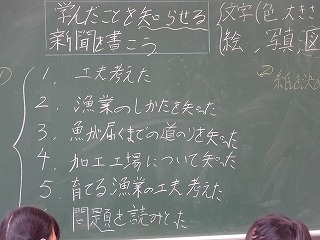 学んだことを知らせる
新聞を書こう
文字(色 大きさ
絵、写真、図
①
1. 工夫考えた
2. 漁業のしかたを知った
3. 魚が届くまでの道のりを知った
4. 加工工場について知った
5. 育てる漁業の工夫考えた
問題を読みとった
②